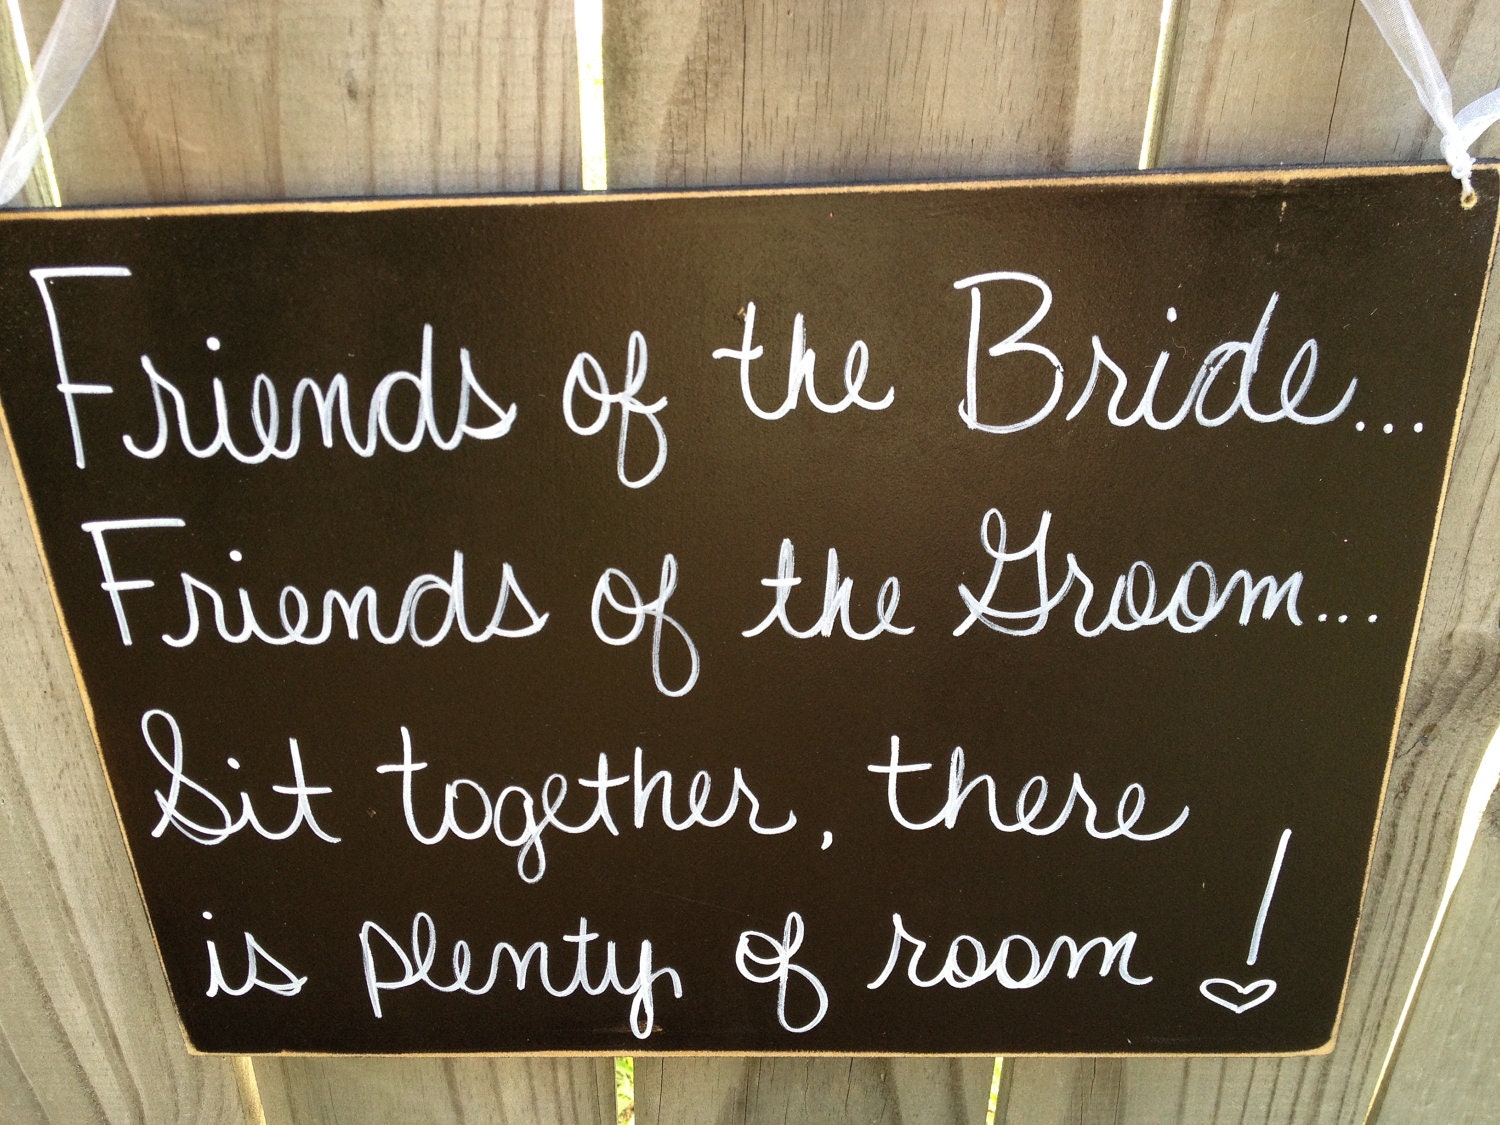 Friends of the Bride...
Friends of the Groom...
Sit together, there
is plenty of room!